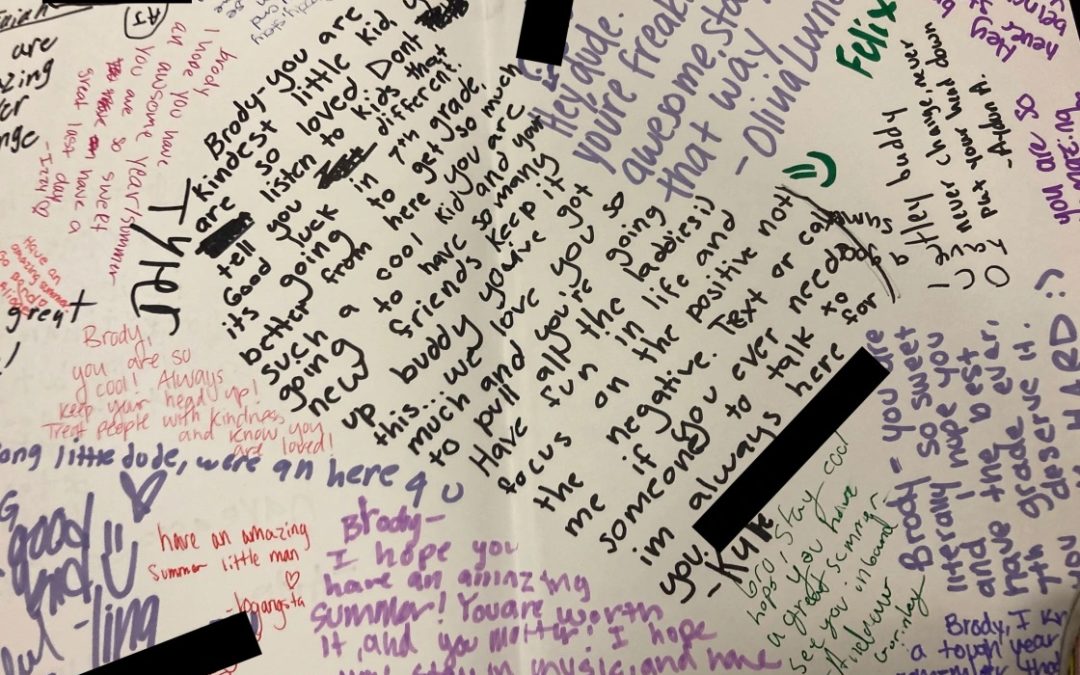 AJ
brody
I hope you have
an awsome year/summer
You are so sweet
have a
great last day
- Izzy
are
great
TyHer
Brody-you are
kindest little kid
are so loved. Dont
tell you listen to kids that
its different.
Good luck in 7th grade,
better going to get so much
from here you are
such a cool kid and your
going to have so many
new friends keep it
up buddy you've got
this... we love you so
much and y'all you're going
to pull the baddies;)
Have fun in life and
focus on the positive not
the negative. Text or call
me if you ever need
someone to talk to
im always here for
you.
-Kyle
Hey dude.
you're freakin
awesome stay
that way
- Olina Luxne
Felix
Hey buddy
never change, never
put your head down
- Aydin A.
Hey
never
you are so
have a
good
sum
Have an
amazing summer
Brody,
you are so
cool! Always
keep your head up!
Treat people with kindness
and know you
are loved!
little dude, were an here 4 U
good
have an amazing
summer little man
♡
-logangsta
Brody-
I hope you
have an aminzting
summer! You are worth
it, and you matter! I hope
you stay in music, and have
bro, stay cool
hope you have
a great summer
see you inbound
Brody - you are
literally so sweet
and I hope you
have the best
7th grade ever,
you deserve it.
HARD :)
Brody, I
a tough year